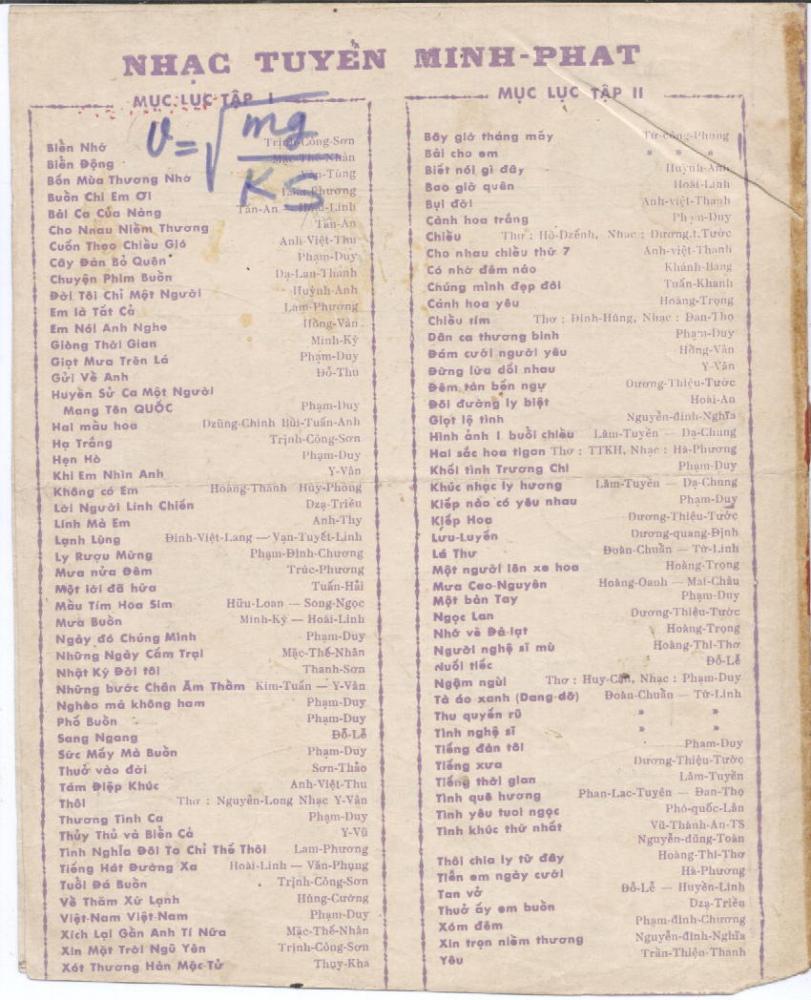 NHẠC TUYỂN MINH-PHAT
MỤC LỤC TẬP I
v = √mg/KS
Biển Nhớ Trịnh-Công-Sơn
Biển Động Mặc-Thế-Nhân
Bốn Mùa Thương Nhớ -Tùng
Buồn Chi Em Ơi Lam-Phương
Bài Ca Của Nàng Tân-An — Hoài-Linh
Cho Nhau Niềm Thương Tân-An
Cuốn Theo Chiều Gió Anh-Việt-Thu
Cây Đàn Bỏ Quên Phạm-Duy
Chuyện Phim Buồn Dạ-Lan-Thanh
Đời Tôi Chỉ Một Người Huỳnh-Anh
Em là Tất Cả Lam-Phương
Em Nói Anh Nghe Hồng-Vân
Giòng Thời Gian Minh-Kỳ
Giọt Mưa Trên Lá Phạm-Duy
Gửi Về Anh Đỗ-Thu
Huyền Sử Ca Một Người
Mang Tên QUỐC Phạm-Duy
Hai màu hoa Dzũng-Chinh Bùi-Tuấn-Anh
Hạ Trắng Trịnh-Công-Sơn
Hẹn Hò Phạm-Duy
Khi Em Nhìn Anh Y-Vân
Không có Em Hoàng-Thanh Huy-Phong
Lời Người Lính Chiến Dzạ-Triều
Lính Mà Em Anh-Thy
Lạnh Lùng Đinh-Việt-Lang — Vạn-Tuyết-Linh
Ly Rượu Mừng Phạm-Đình-Chương
Mưa nửa Đêm Trúc-Phương
Một lời đã hứa Tuấn-Hải
Mầu Tím Hoa Sim Hữu-Loan — Song-Ngọc
Mưa Buồn Minh-Kỳ — Hoài-Linh
Ngày đó Chúng Mình Phạm-Duy
Những Ngày Cắm Trại Mặc-Thế-Nhân
Nhật Ký Đời tôi Thanh-Sơn
Những bước Chân Âm Thầm Kim-Tuấn — Y-Vân
Nghèo mà không ham Phạm-Duy
Phố Buồn Phạm-Duy
Sang Ngang Đỗ-Lễ
Sức Mấy Mà Buồn Phạm-Duy
Thuở vào đời Sơn-Thảo
Tám Điệp Khúc Anh-Việt-Thu
Thôi Thơ : Nguyễn-Long Nhạc Y-Vân
Thương Tình Ca Phạm-Duy
Thủy Thủ và Biển Cả Y-Vũ
Tình Nghĩa Đôi Ta Chỉ Thế Thôi Lam-Phương
Tiếng Hát Đường Xa Hoài-Linh — Văn-Phụng
Tuổi Đá Buồn Trịnh-Công-Sơn
Về Thăm Xứ Lạnh Hùng-Cường
Việt-Nam Việt-Nam Phạm-Duy
Xích Lại Gần Anh Tí Nữa Mặc-Thế-Nhân
Xin Mặt Trời Ngũ Yên Trịnh-Công-Sơn
Xót Thương Hàn Mặc-Tử Thụy-Kha
MỤC LỤC TẬP II
Bây giờ tháng mấy Từ-công-Phụng
Bài cho em " " "
Biết nói gì đây Huỳnh-Anh
Bao giờ quên Hoài-Linh
Bụi đời Anh-việt-Thanh
Cánh hoa trắng Phạm-Duy
Chiều Thơ : Hồ-Dzếnh, Nhạc : Dương.t.Tước
Cho nhau chiều thứ 7 Anh-việt-Thanh
Có nhớ đêm nào Khánh-Băng
Chúng mình đẹp đôi Tuấn-Khanh
Cánh hoa yêu Hoàng-Trọng
Chiều tím Thơ : Đinh-Hùng, Nhạc : Đan-Thọ
Dân ca thương binh Phạm-Duy
Đám cưới người yêu Hồng-Vân
Đừng lừa dối nhau Y-Vân
Đêm tàn bến ngự Dương-Thiệu-Tước
Đôi đường ly biệt Hoài-An
Giọt lệ tình Nguyễn-đình-Nghĩa
Hình ảnh 1 buổi chiều Lâm-Tuyền — Dạ-Chung
Hai sắc hoa tigan Thơ : TTKH, Nhạc : Hà-Phương
Khối tình Trương Chi Phạm-Duy
Khúc nhạc ly hương Lâm-Tuyền — Dạ-Chung
Kiếp nào có yêu nhau Phạm-Duy
Kiếp Hoa Dương-Thiệu-Tước
Lưu-Luyến Dương-quang-Định
Lá Thư Đoàn-Chuẩn — Từ-Linh
Một người lên xe hoa Hoàng-Trọng
Mưa Cao-Nguyên Hoàng-Oanh — Mai-Châu
Một bàn Tay Phạm-Duy
Ngọc Lan Dương-Thiệu-Tước
Nhớ về Đà-lạt Hoàng-Trọng
Người nghệ sĩ mù Hoàng-Thi-Thơ
Nuối tiếc Đỗ-Lễ
Ngậm ngùi Thơ : Huy-Cận, Nhạc : Phạm-Duy
Tà áo xanh (Dang-dở) Đoàn-Chuẩn — Từ-Linh
Thu quyến rũ " "
Tình nghệ sĩ " "
Tiếng đàn tôi Phạm-Duy
Tiếng xưa Dương-Thiệu-Tước
Tiếng thời gian Lâm-Tuyền
Tình quê hương Phan-Lạc-Tuyên — Đan-Thọ
Tình yêu tươi ngọc Phó-quốc-Lân
Tình khúc thứ nhất Vũ-Thành-An-TS
Nguyễn-đũng-Toàn
Thôi chia ly từ đây Hoàng-Thi-Thơ
Tiễn em ngày cưới Hà-Phương
Tan vỡ Đỗ-Lễ — Huyền-Linh
Thuở ấy em buồn Dzạ-Triều
Xóm đêm Phạm-đình-Chương
Xin trọn niềm thương Nguyễn-đình-Nghĩa
Yêu Trần-Thiện-Thanh